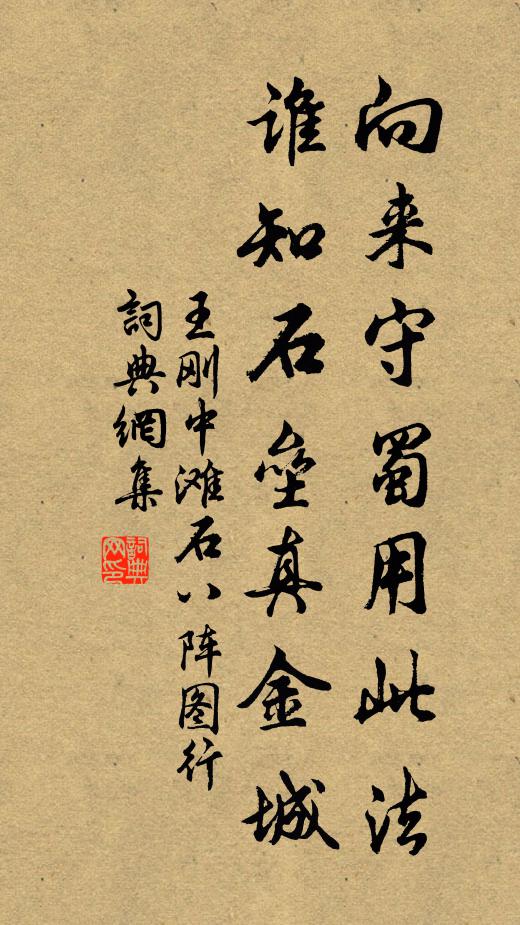 向来守蜀用此法
谁知石垒真金城
王刚中滩石八阵图行
詞典網集
詞典網印